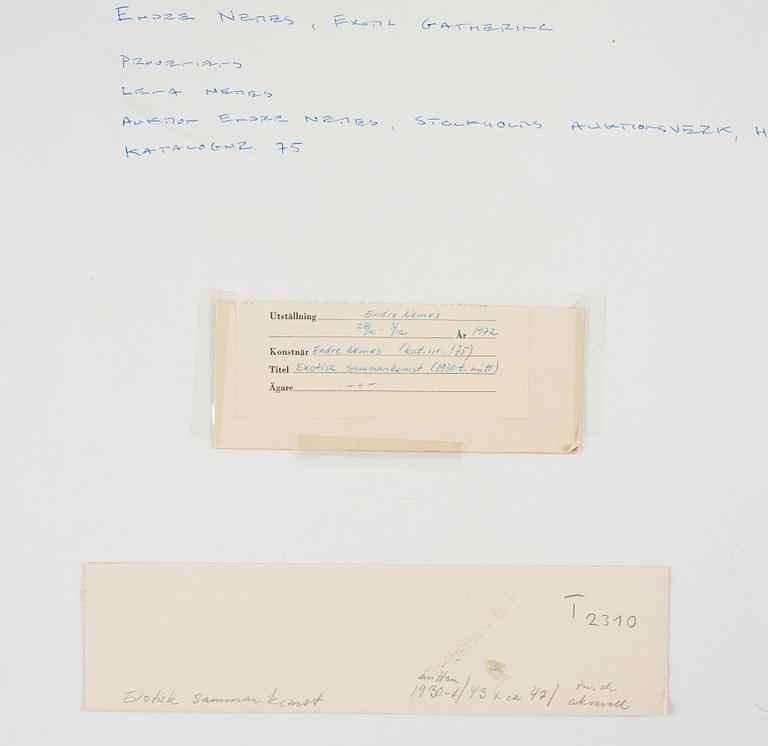 ENDRE NEMES, EXOTIC GATHERING
PROVENIENS
LENA NEMES
AUKTION ENDRE NEMES, STOCKHOLMS AUKTIONSVERK, H
KATALOGNR. 75
Utställning Endre Nemes
28/10 - 3/12 År 1972
Konstnär Endre Nemes (kat.nr. 175)
Titel Exotisk sammankomst (1930-t. mitt)
Ägare -"-
T 2310
mitten tusch
Exotisk sammankomst 1930-t/43 x ca 47/ akvarell